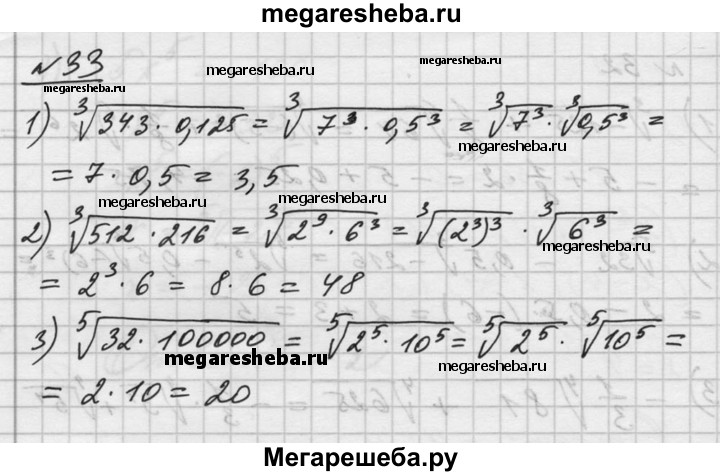 megaresheba.ru
№33
megaresheba.ru
megaresheba.ru
megaresheba.ru
1) ∛(343 · 0,125) = ∛(7³ · 0,5³) = ∛7³ · ∛0,5³ =
= 7 · 0,5 = 3,5
megaresheba.ru
megaresheba.ru
megaresheba.ru
2) ∛(512 · 216) = ∛(2⁹ · 6³) = ∛(2³)³ · ∛6³ =
megaresheba.ru
= 2³ · 6 = 8 · 6 = 48
3) ⁵√(32 · 100000) = ⁵√(2⁵ · 10⁵) = ⁵√2⁵ · ⁵√10⁵ =
megaresheba.ru
megaresheba.ru
= 2 · 10 = 20
Мегарешеба.ру